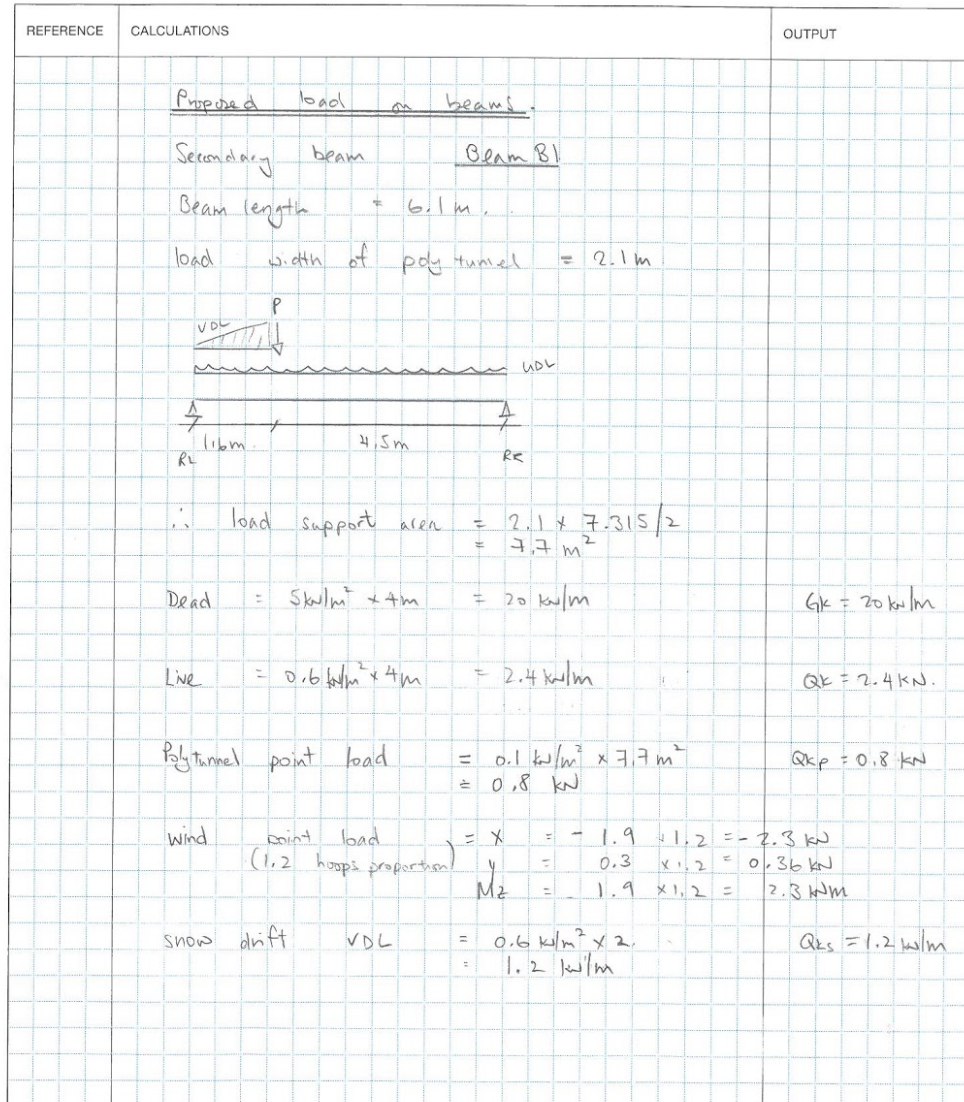 REFERENCE CALCULATIONS OUTPUT
Proposed load on beams.
Secondary beam Beam B1
Beam length = 6.1 m.
load width of poly tunnel = 2.1 m
P
VDL
UDL
1.6m 4.5m
RL RR
∴ load support area = 2.1 x 7.315/2
= 7.7 m²
Dead = 5kN/m² x 4m = 20 kN/m Gk = 20 kN/m
Live = 0.6 kN/m² x 4m = 2.4 kN/m Qk = 2.4 KN.
Polytunnel point load = 0.1 kN/m² x 7.7 m² Qkp = 0.8 kN
= 0.8 kN
wind point load = X = - 1.9 x 1.2 = - 2.3 kN
(1.2 hoops proportion) y = 0.3 x 1.2 = 0.36 kN
Mz = 1.9 x 1.2 = 2.3 kNm
snow drift VDL = 0.6 kN/m² x 2. Qks = 1.2 kN/m
= 1.2 kN/m